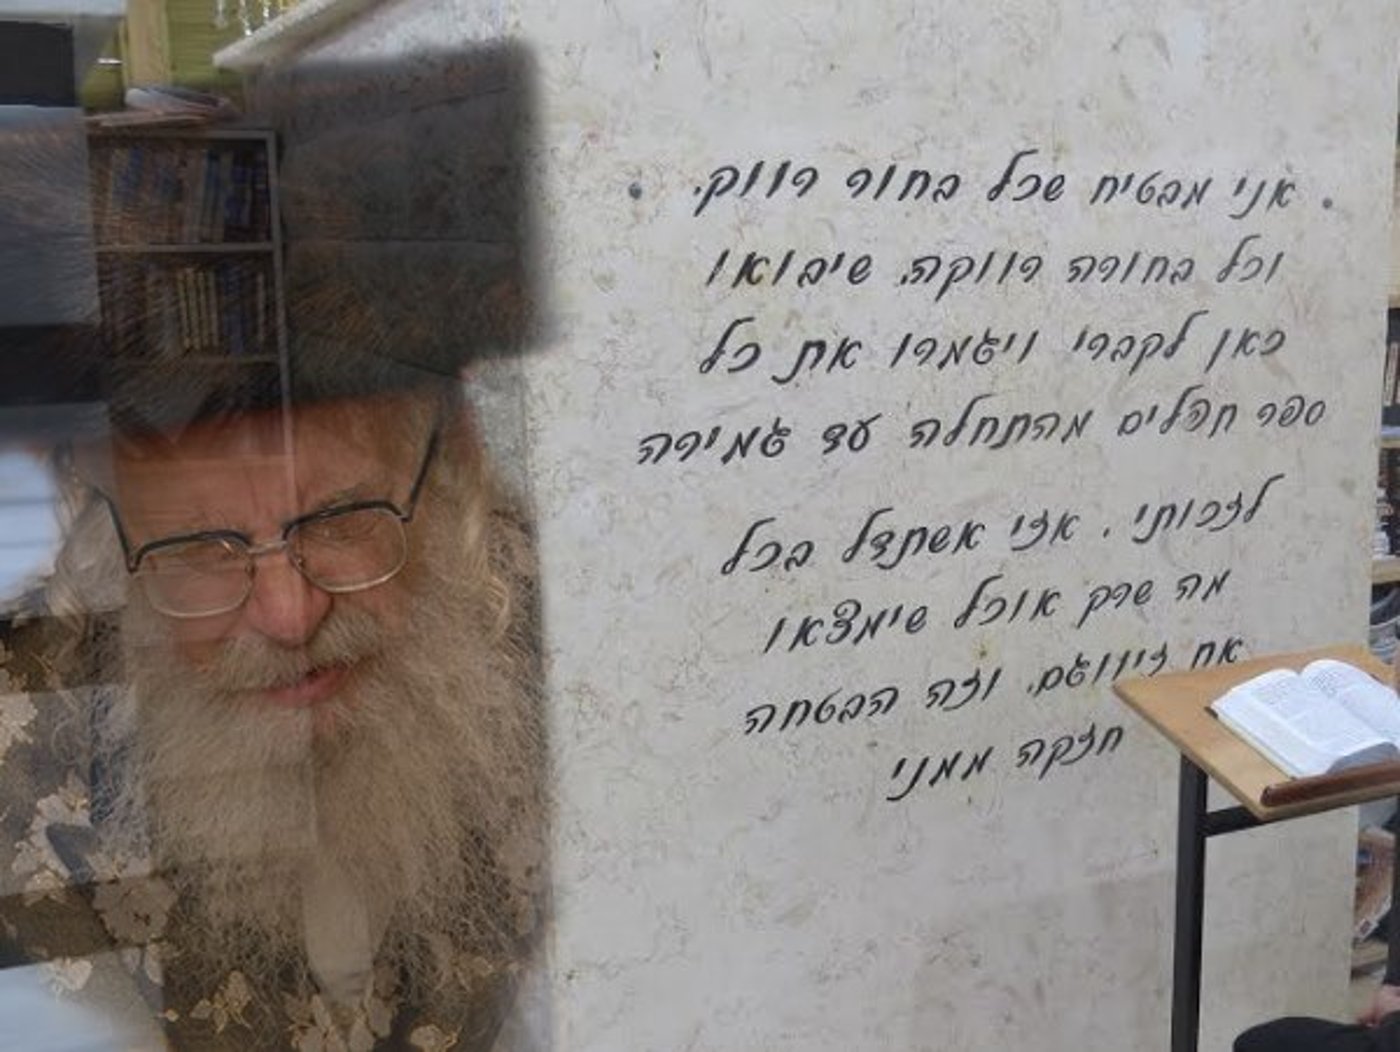 . אני מבטיח שכל בחור רווק.
וכל בחורה רווקה. שיבואו
כאן לקברי ויגמרו את כל
ספר תהלים מהתחלה עד גמירה
לזכותי. אזי אשתדל בכל
מה שרק אוכל שימצאו
את זיווגם. וזה הבטחה
חזקה ממני